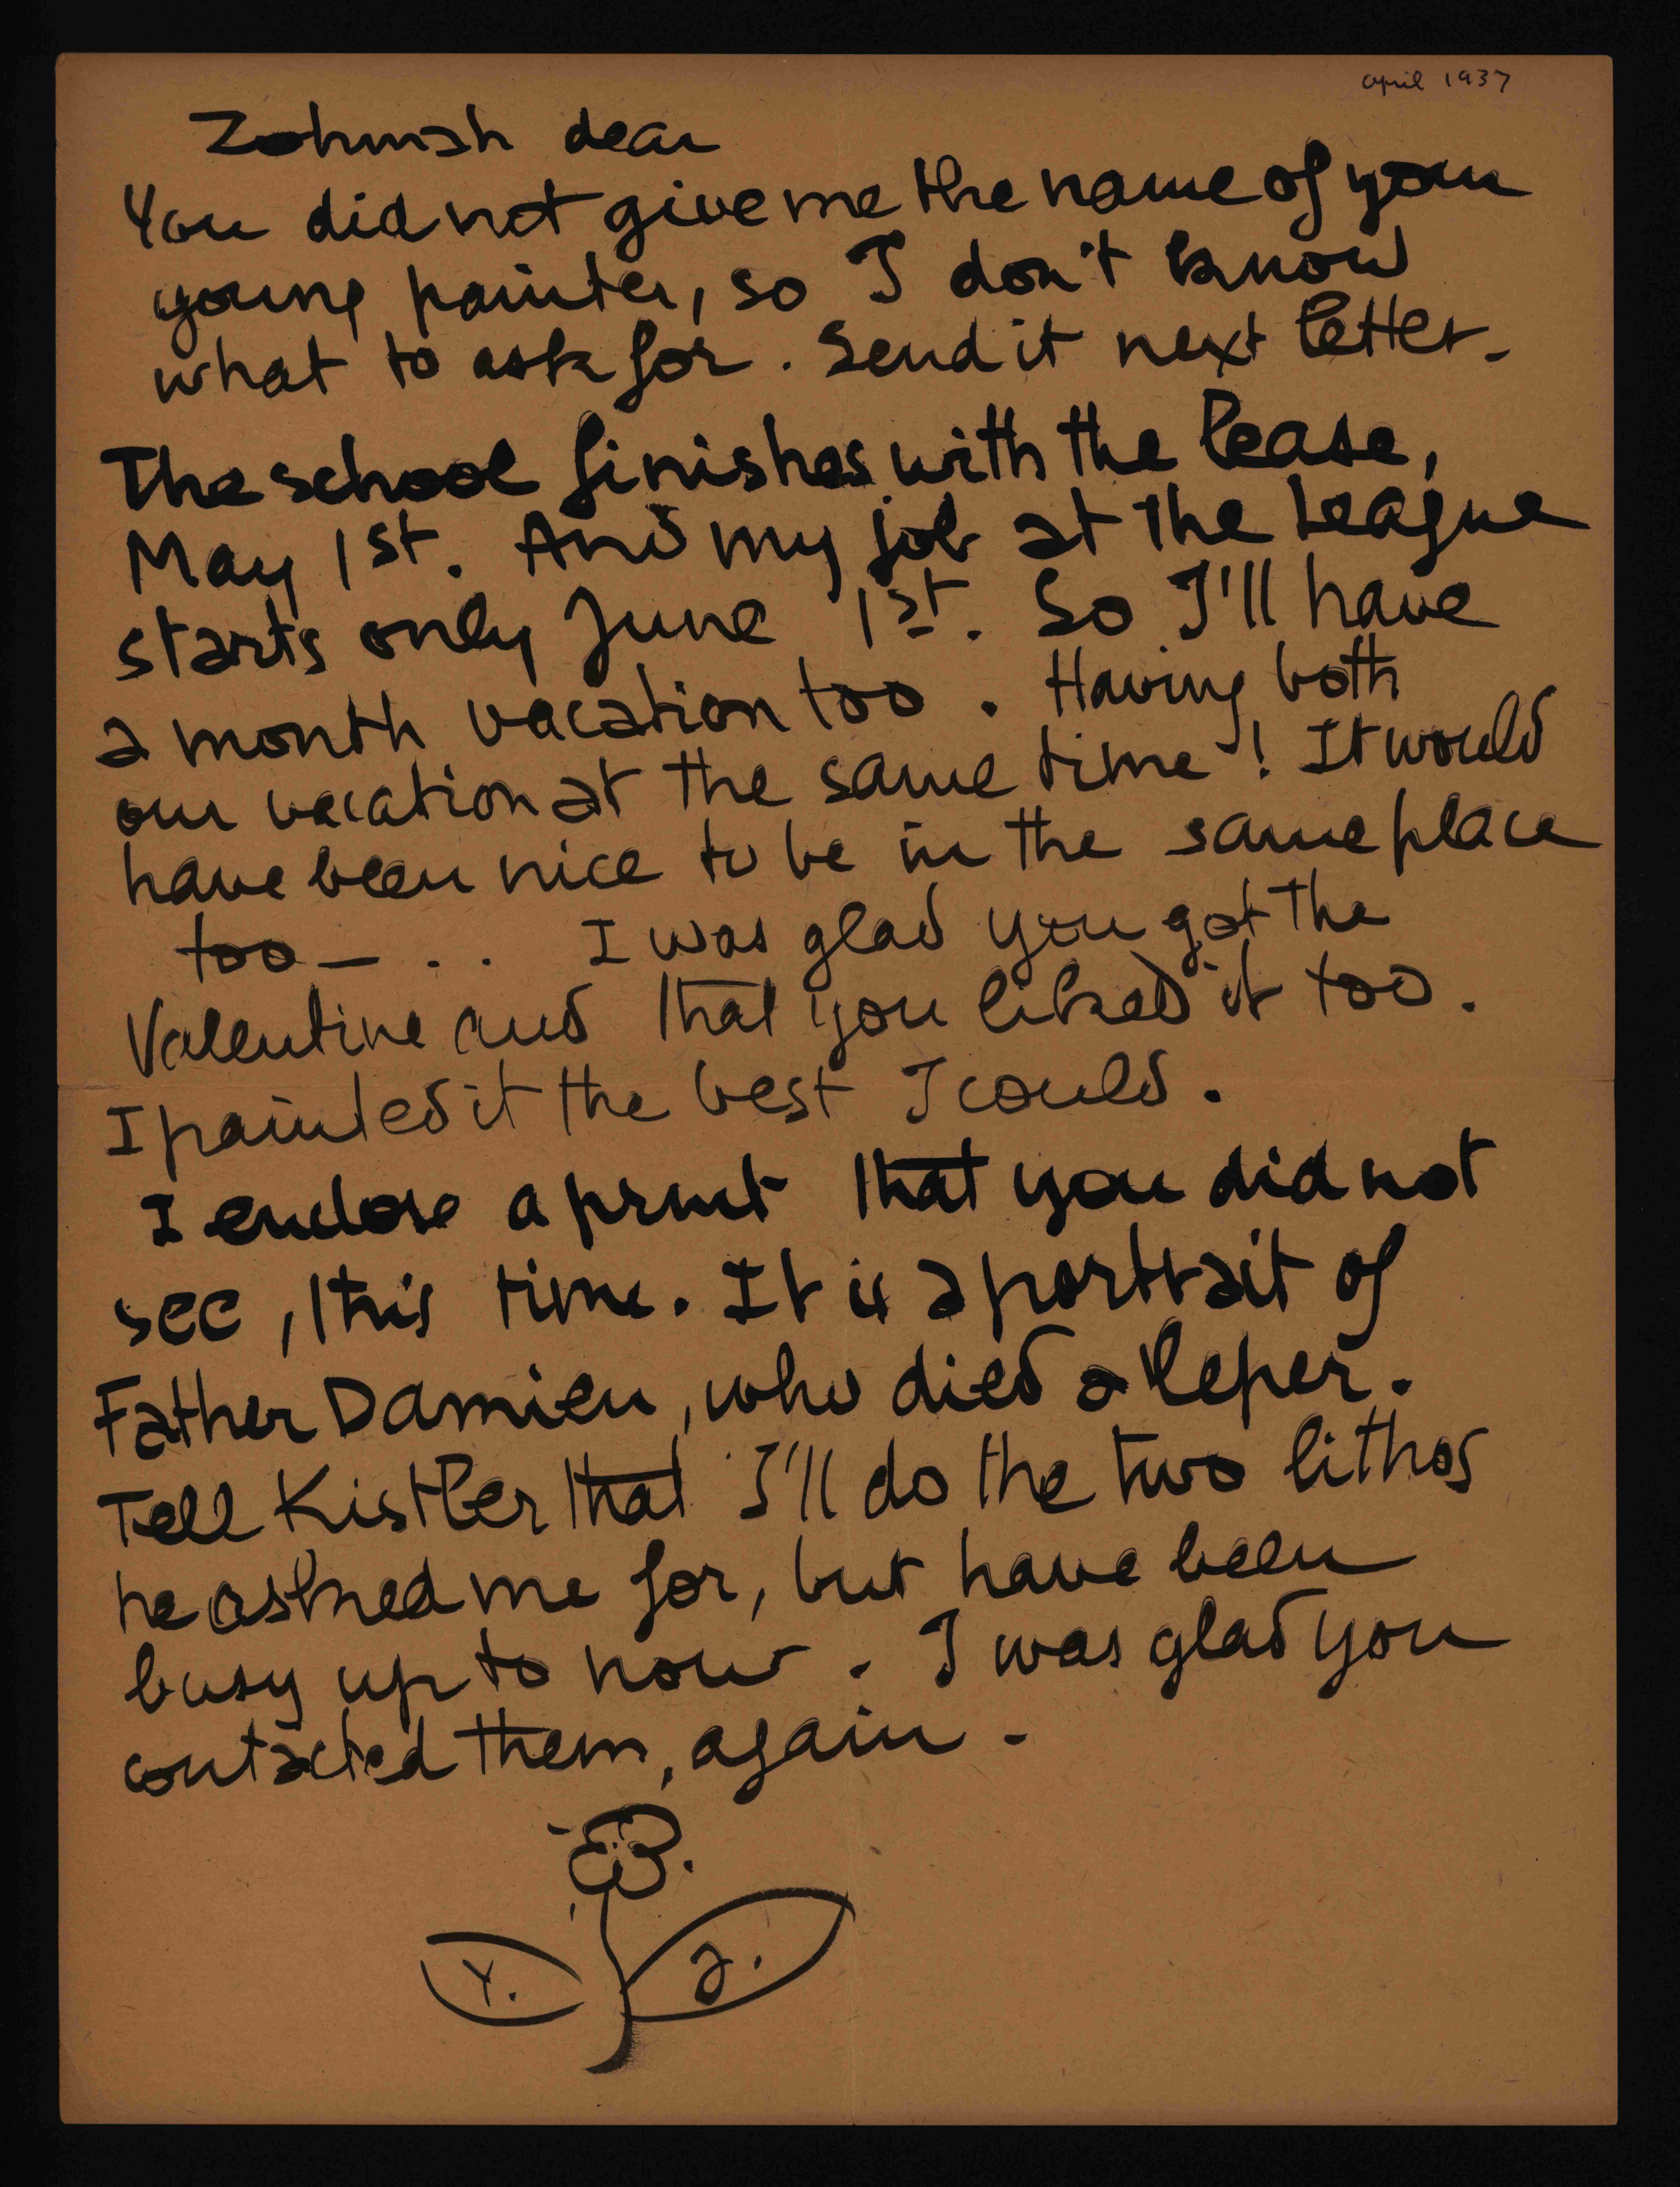 april 1937
Zohmah dear
You did not give me the name of your
young painter, so I don't know
what to ask for. Send it next letter.
The school finishes with the lease,
May 1st. And my job at the League
starts only June 1st. So I'll have
a month vacation too. Having both
our vacation at the same time! It would
have been nice to be in the same place
too — . . I was glad you got the
Valentine and that you liked it too.
I painted it the best I could.
I enclose a print that you did not
see, this time. It is a portrait of
Father Damien, who died a leper.
Tell Kistler that I'll do the two lithos
he asked me for, but have been
busy up to now. I was glad you
contacted them, again -
Y. J.